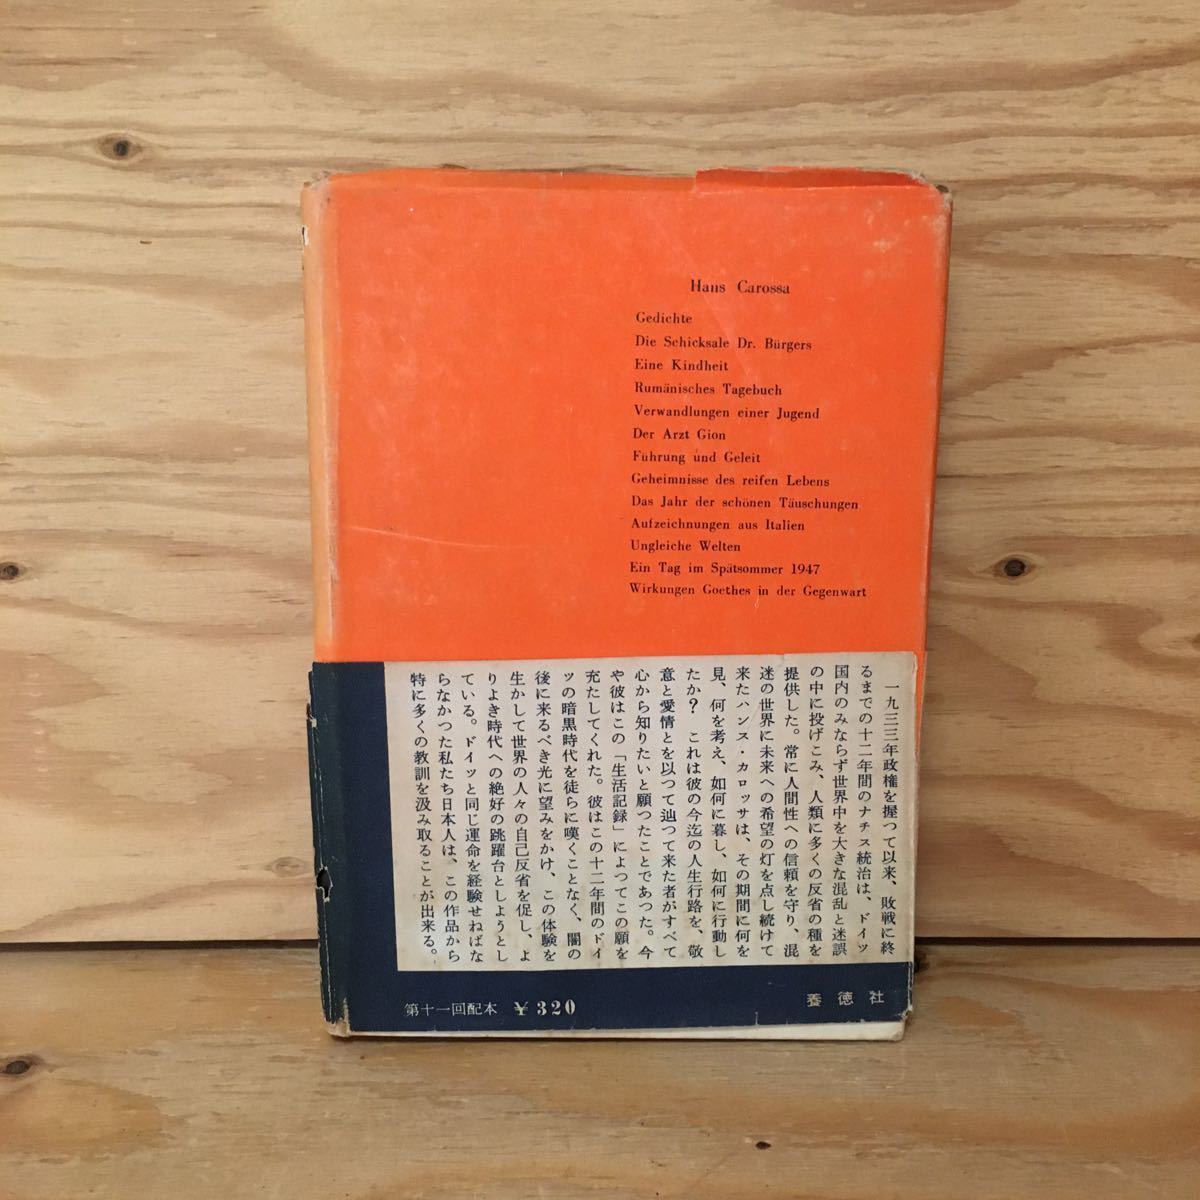 Hans Carossa
Gedichte
Die Schicksale Dr. Bürgers
Eine Kindheit
Rumänisches Tagebuch
Verwandlungen einer Jugend
Der Arzt Gion
Führung und Geleit
Geheimnisse des reifen Lebens
Das Jahr der schönen Täuschungen
Aufzeichnungen aus Italien
Ungleiche Welten
Ein Tag im Spätsommer 1947
Wirkungen Goethes in der Gegenwart
一九三三年政権を握つて以来、敗戦に終
るまでの十二年間のナチス統治は、ドイツ
国内のみならず世界中を大きな混乱と迷誤
の中に投げこみ、人類に多くの反省の種を
提供した。常に人間性への信頼を守り、混
迷の世界に未来への希望の灯を点し続けて
来たハンス・カロッサは、その期間に何を
見、何を考え、如何に暮し、如何に行動し
たか？　これは彼の今迄の人生行路を、敬
意と愛情とを以つて辿つて来た者がすべて
心から知りたいと願つたことであつた。今
や彼はこの「生活記録」によつてこの願を
充たしてくれた。彼はこの十二年間のドイ
ツの暗黒時代を徒らに嘆くことなく、闇の
後に来るべき光に望みをかけ、この体験を
生かして世界の人々の自己反省を促し、よ
りよき時代への絶好の跳躍台としようとし
ている。ドイツと同じ運命を経験せねばな
らなかつた私たち日本人は、この作品から
特に多くの教訓を汲み取ることが出来る。
第十一回配本　￥320
養徳社